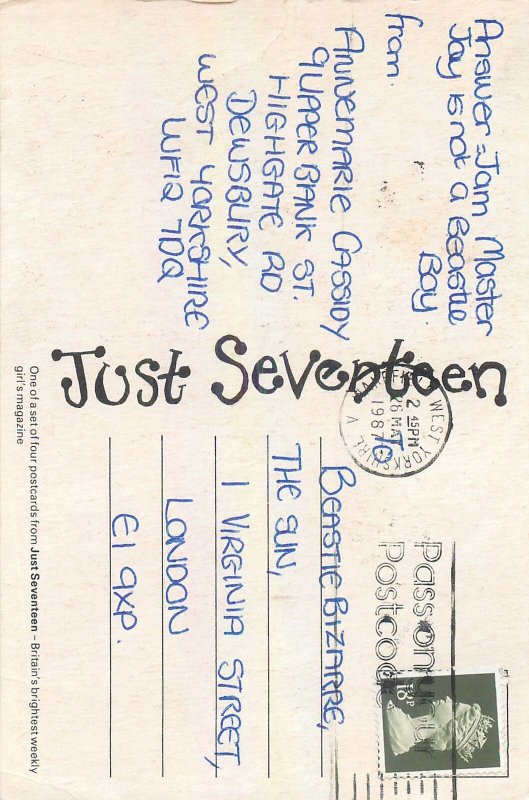 Answer = Jam Master
Jay is not a Beastie
Boy.
from.
ANNEMARIE CASSIDY
9 UPPER BANK ST.
HIGHGATE RD
DEWSBURY,
WEST YORKSHIRE
WF12 7DQ
Just Seventeen
One of a set of four postcards from Just Seventeen – Britain's brightest weekly
girl's magazine
WEST YORKSHIRE A
2 45PM
1987
TO
BEASTIE BIZARRE,
THE SUN,
1 VIRGINIA STREET,
LONDON
E1 9XP.
Pass on your
Postcode
18P